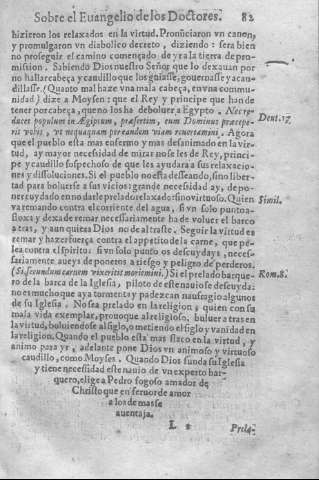 Sobre el Euangelio de los Doctores. 82
hizieron los relaxados en la virtud. Pronũciaron vn canon,
y promulgaron vn diabolico decreto, diziendo: sera bien
no proseguir el camino començado, de yr a la tierra de pro-
mission. Sabiendo Dios nuestro Señor que lo dexauan por
no hallar cabeça y caudillo que los guiasse, gouernasse y acau-
dillasse. (Quanto mal haze vna mala cabeça, en vna commu-
nidad) dize a Moysen: que el Rey y principe que han de
tener por cabeça, que no los ha de boluer a Egypto. Nec re-
ducet populum in Ægiptum, præsertim, cum Dominus præcepe-
rit vobis, vt nequaquam per eandem viam reuertamini. Agora
Deut. 17.
que el pueblo esta mas enfermo y mas desanimado en la vir-
tud, ay mayor necesidad de mirar no se les de Rey, princi-
pe y caudillo sospechoso de que les ayudara a sus relaxacio-
nes y dissoluciones. Si el pueblo no esta desseando, sino liber-
tad para boluerse a sus vicios: grande necesidad ay, de po-
ner cuydado en no darle prelado relaxado: sino virtuoso. Quien
Simil.
va remando contra el corriente del agua, si vn solo punto a-
floxa y dexa de remar necessariamente ha de voluer el barco
a tras, y aun quiera Dios no de altraste. Seguir la virtud es
remar y hazer fuerça contra el appetito de la carne, que pe-
lea contra el spiritu: si vn solo punto os descuydays, neces-
sariamente aueys de poneros a riesgo y peligro de perderos.
(Si secundum carnem vixeritis moriemini.) Si el prelado barque-
Rom. 8.
ro de la barca de la Iglesia, piloto de este nauio se descuyda:
no es mucho que aya tormenta y padezcan naufragio algunos
de su Iglesia. No sea prelado en la religion, quien con su
mala vida exemplar, prouoque al religioso, buluer a tras en
la virtud, boluiendose al siglo, o metiendo el siglo y vanidad en
la religion. Quando el pueblo esta mas flaco en la virtud, y
animo para yr, adelante pone Dios vn animoso y virtuoso
caudillo, como Moysen. Quando Dios funda su Iglesia
y tiene necessidad este nauio de vn experto bar-
quero, elige a Pedro fogoso amador de
Christo que en feruor de amor
a los de mas se
auentaja.
L 2 Prela-